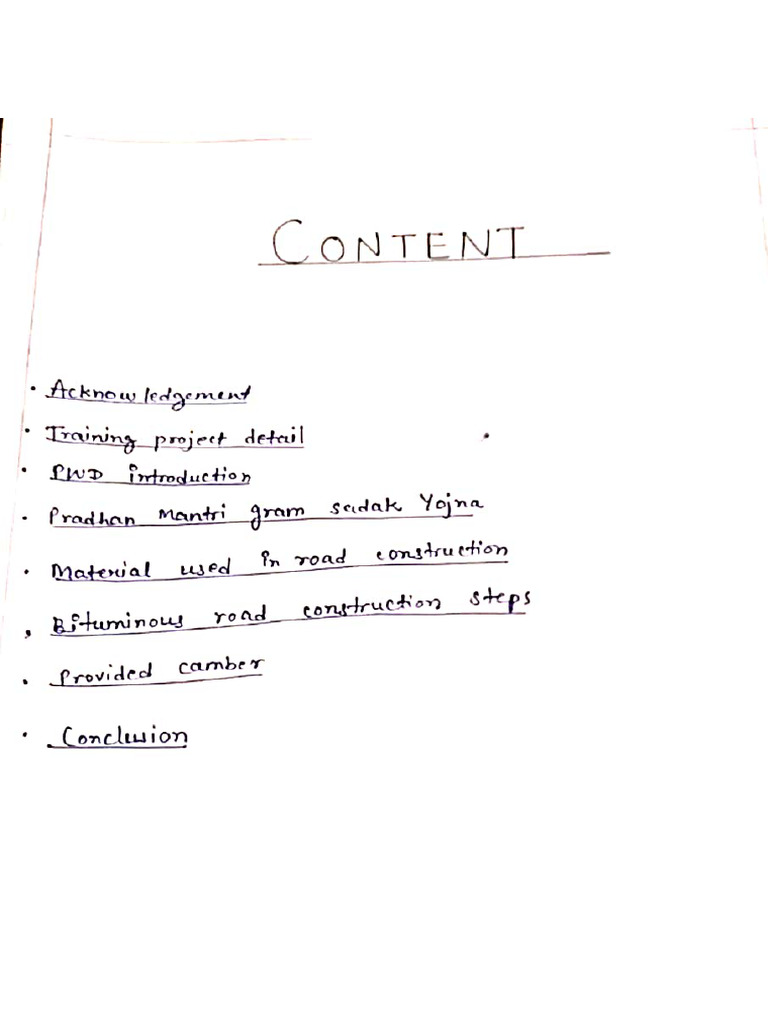 CONTENT
• Acknowledgement
• Training project detail
• PWD introduction
• Pradhan Mantri gram sadak Yojna
• Material used in road construction
• Bituminous road construction steps
• Provided camber
• Conclusion